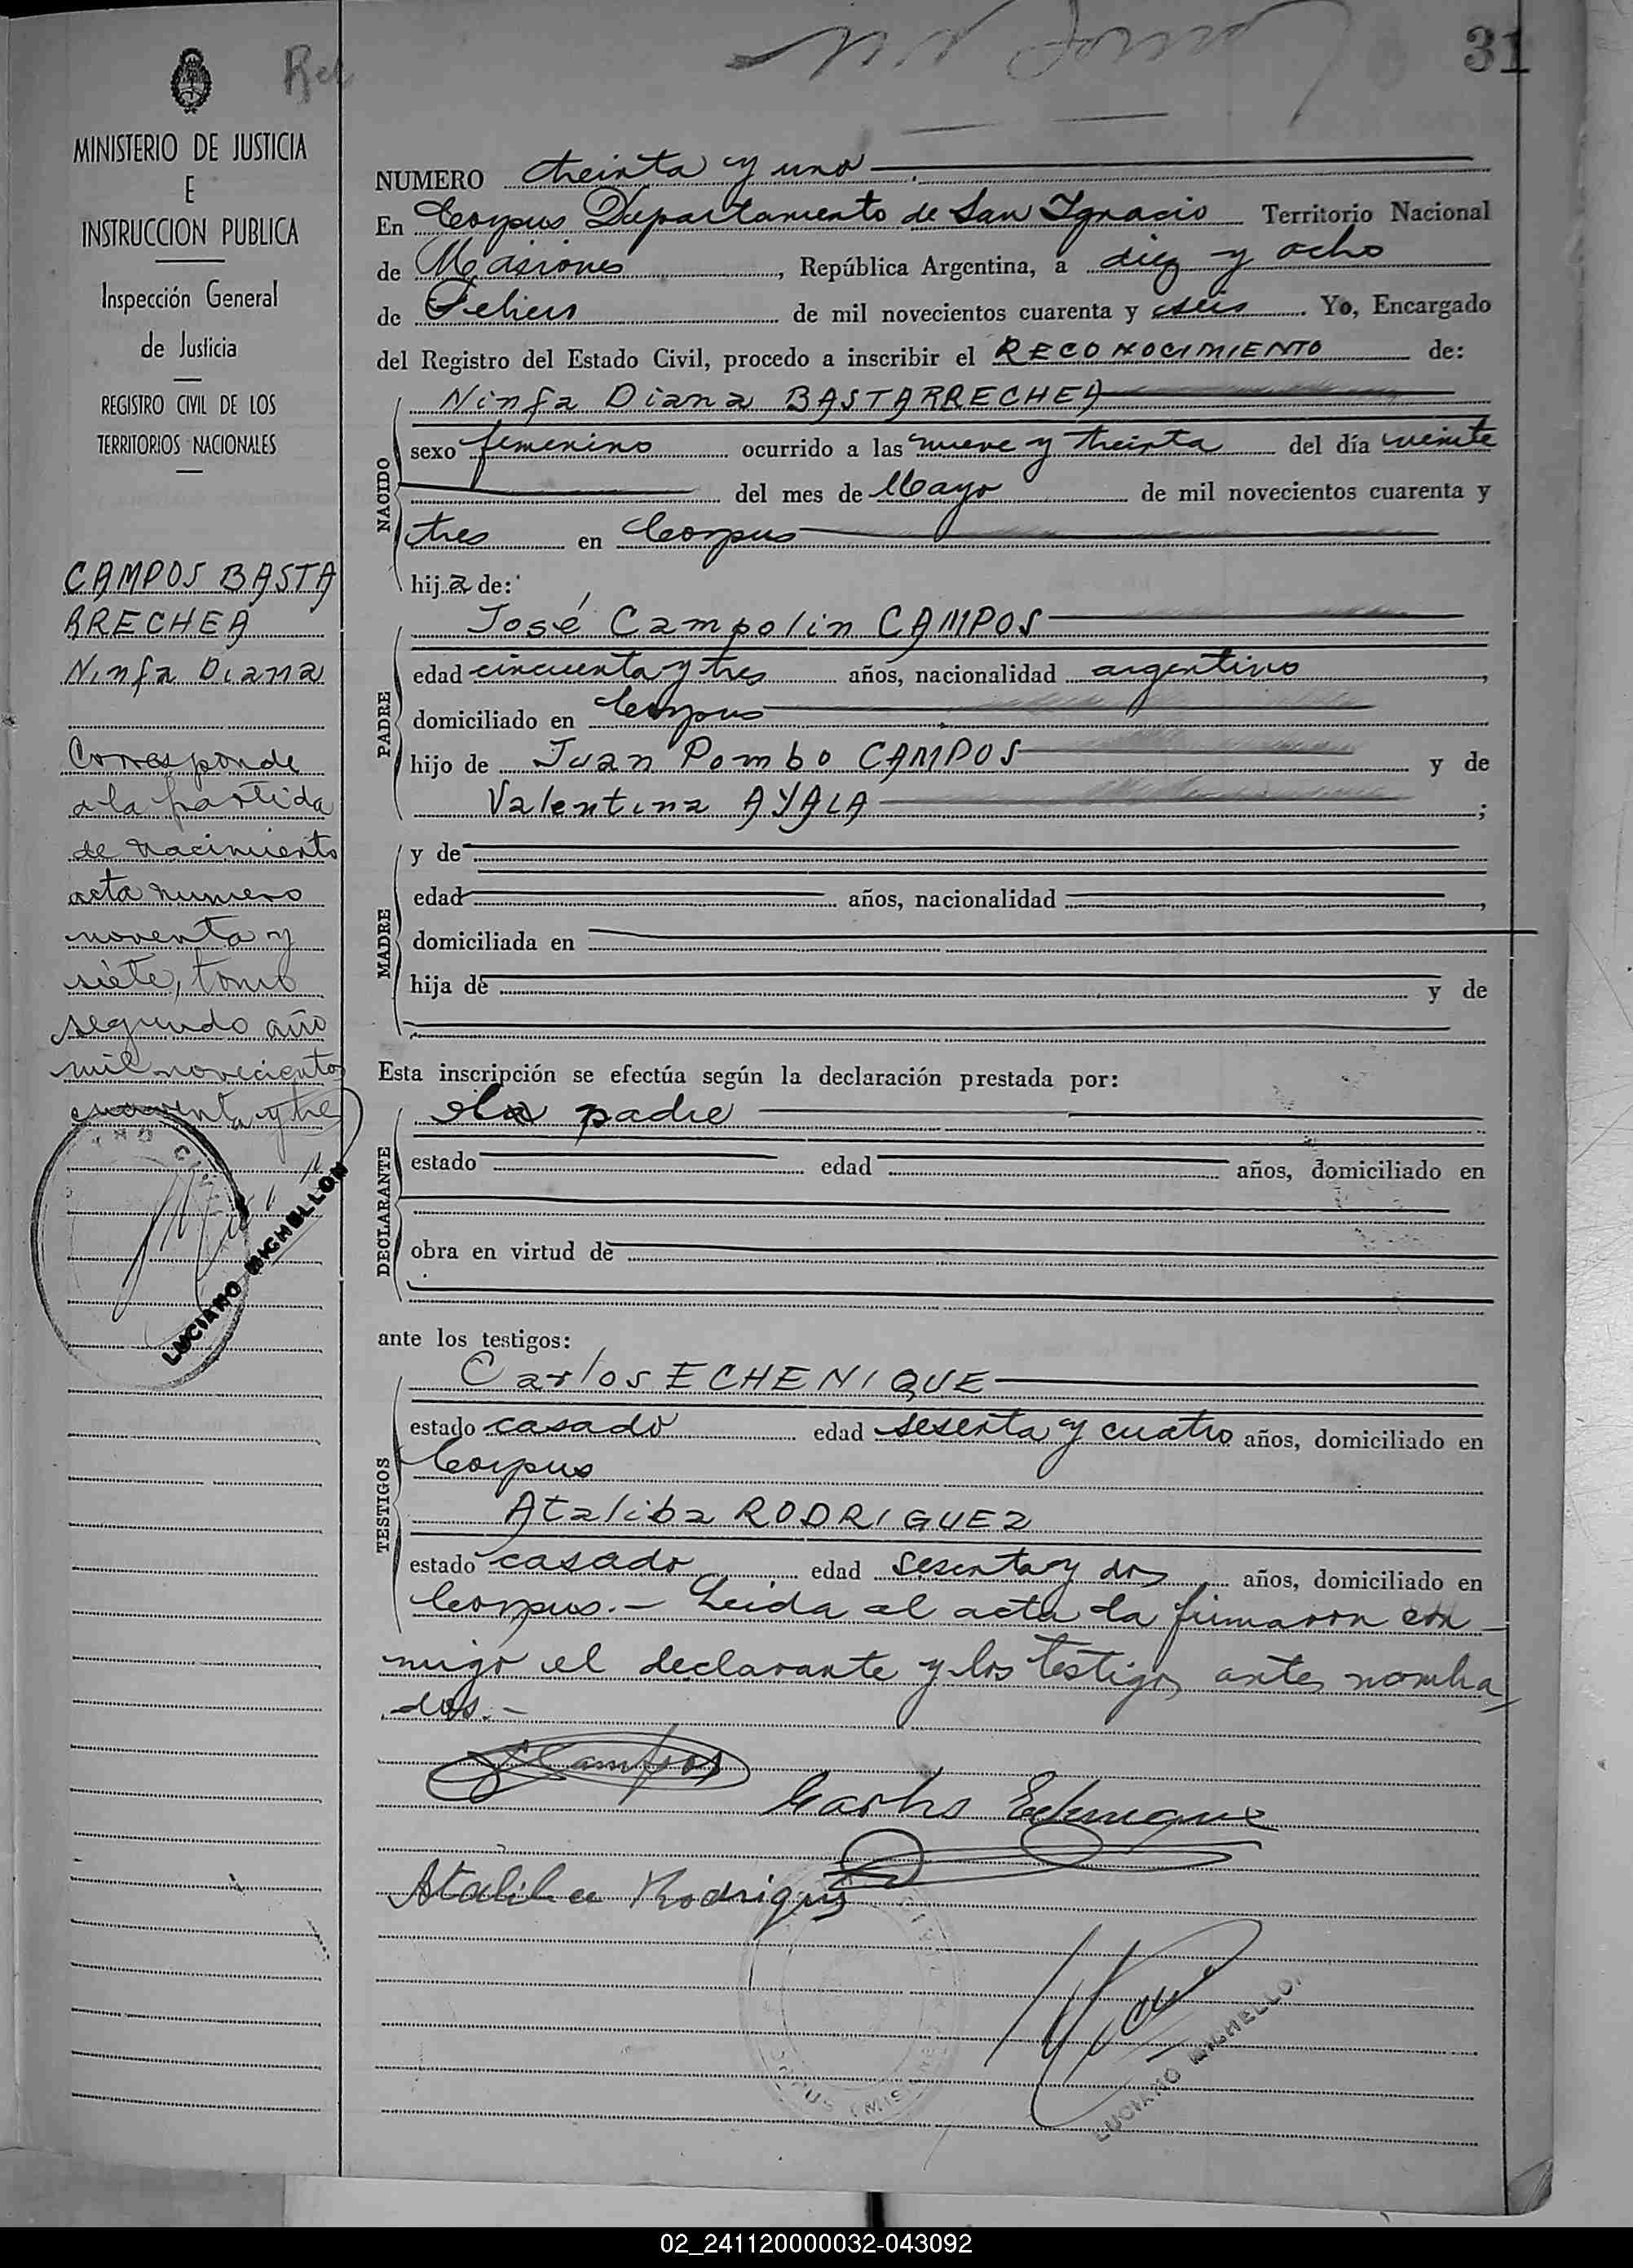 31
Rec
MINISTERIO DE JUSTICIA
E
INSTRUCCION PUBLICA
Inspección General
de Justicia
REGISTRO CIVIL DE LOS
TERRITORIOS NACIONALES
CAMPOS BASTA
RRECHEA
Ninfa Diana
Corresponde
a la partida
de nacimiento
acta numero
noventa y
siete, tomo
segundo año
mil novecientos
cuarenta y tres
LUCIANO MIGHELLON
NUMERO treinta y uno
En Corpus Departamento de San Ignacio Territorio Nacional
de Misiones, República Argentina, a diez y ocho
de de mil novecientos cuarenta y seis. Yo, Encargado
del Registro del Estado Civil, procedo a inscribir el RECONOCIMIENTO de:
NACIDO
Ninfa Diana BASTARRECHEA
sexo femenino ocurrido a las nueve y treinta del día veinte
del mes de Mayo de mil novecientos cuarenta y
tres en Corpus
hija de:
PADRE
José Campolin CAMPOS
edad cincuenta y tres años, nacionalidad argentino,
domiciliado en Corpus
hijo de Juan Pombo CAMPOS y de
Valentina AYALA;
MADRE
y de
edad años, nacionalidad,
domiciliada en
hija de y de
Esta inscripción se efectúa según la declaración prestada por:
DECLARANTE
padre
estado edad años, domiciliado en
obra en virtud de
ante los testigos:
TESTIGOS
Carlos ECHENIQUE
estado casado edad sesenta y cuatro años, domiciliado en
Corpus
Ataliba RODRIGUEZ
estado casado edad sesenta y dos años, domiciliado en
Corpus.- Leida el acta la firmaron con
migo el declarante y los testigos antes nombra
dos.-
JCampos
Carlos Echenique
Ataliba Rodriguez
LUCIANO MIGHELLO
02_241120000032-043092